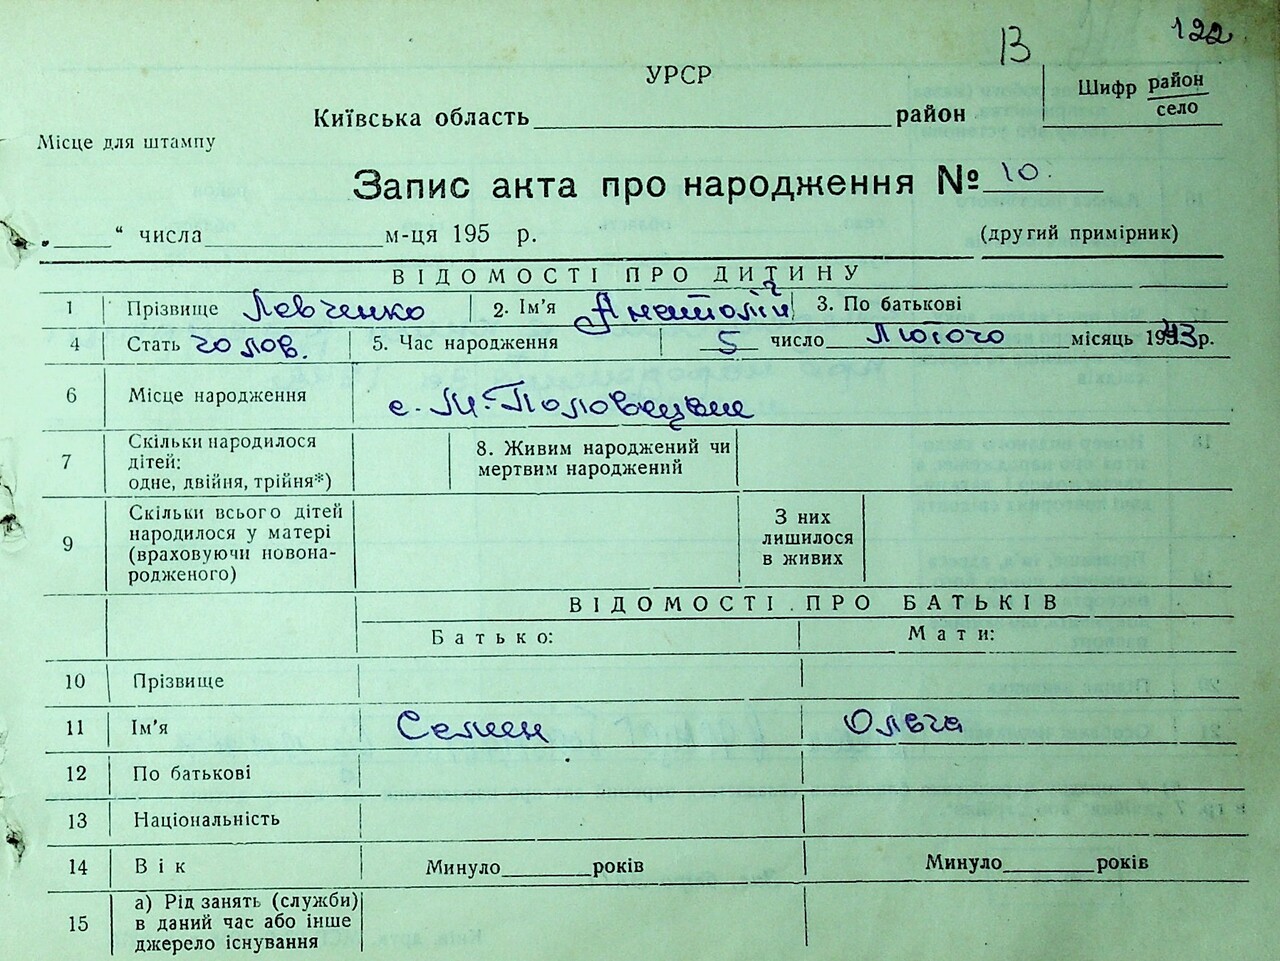 122
В
УРСР
Київська область район
Шифр район
село
Місце для штампу
Запис акта про народження № 10.
„ “ числа м-ця 195 р.
(другий примірник)
ВІДОМОСТІ ПРО ДИТИНУ
1 Прізвище Левченко 2. Ім'я Анатолій 3. По батькові
4 Стать чолов. 5. Час народження 5 число Лютого місяць 1943р.
6 Місце народження с. М-Половецьке
7 Скільки народилося дітей: одне, двійня, трійня*) 8. Живим народжений чи мертвим народжений
9 Скільки всього дітей народилося у матері (враховуючи новонародженого) З них лишилося в живих
ВІДОМОСТІ ПРО БАТЬКІВ
Батько: Мати:
10 Прізвище
11 Ім'я Семен Ольга
12 По батькові
13 Національність
14 Вік Минуло років Минуло років
15 а) Рід занять (служби) в даний час або інше джерело існування